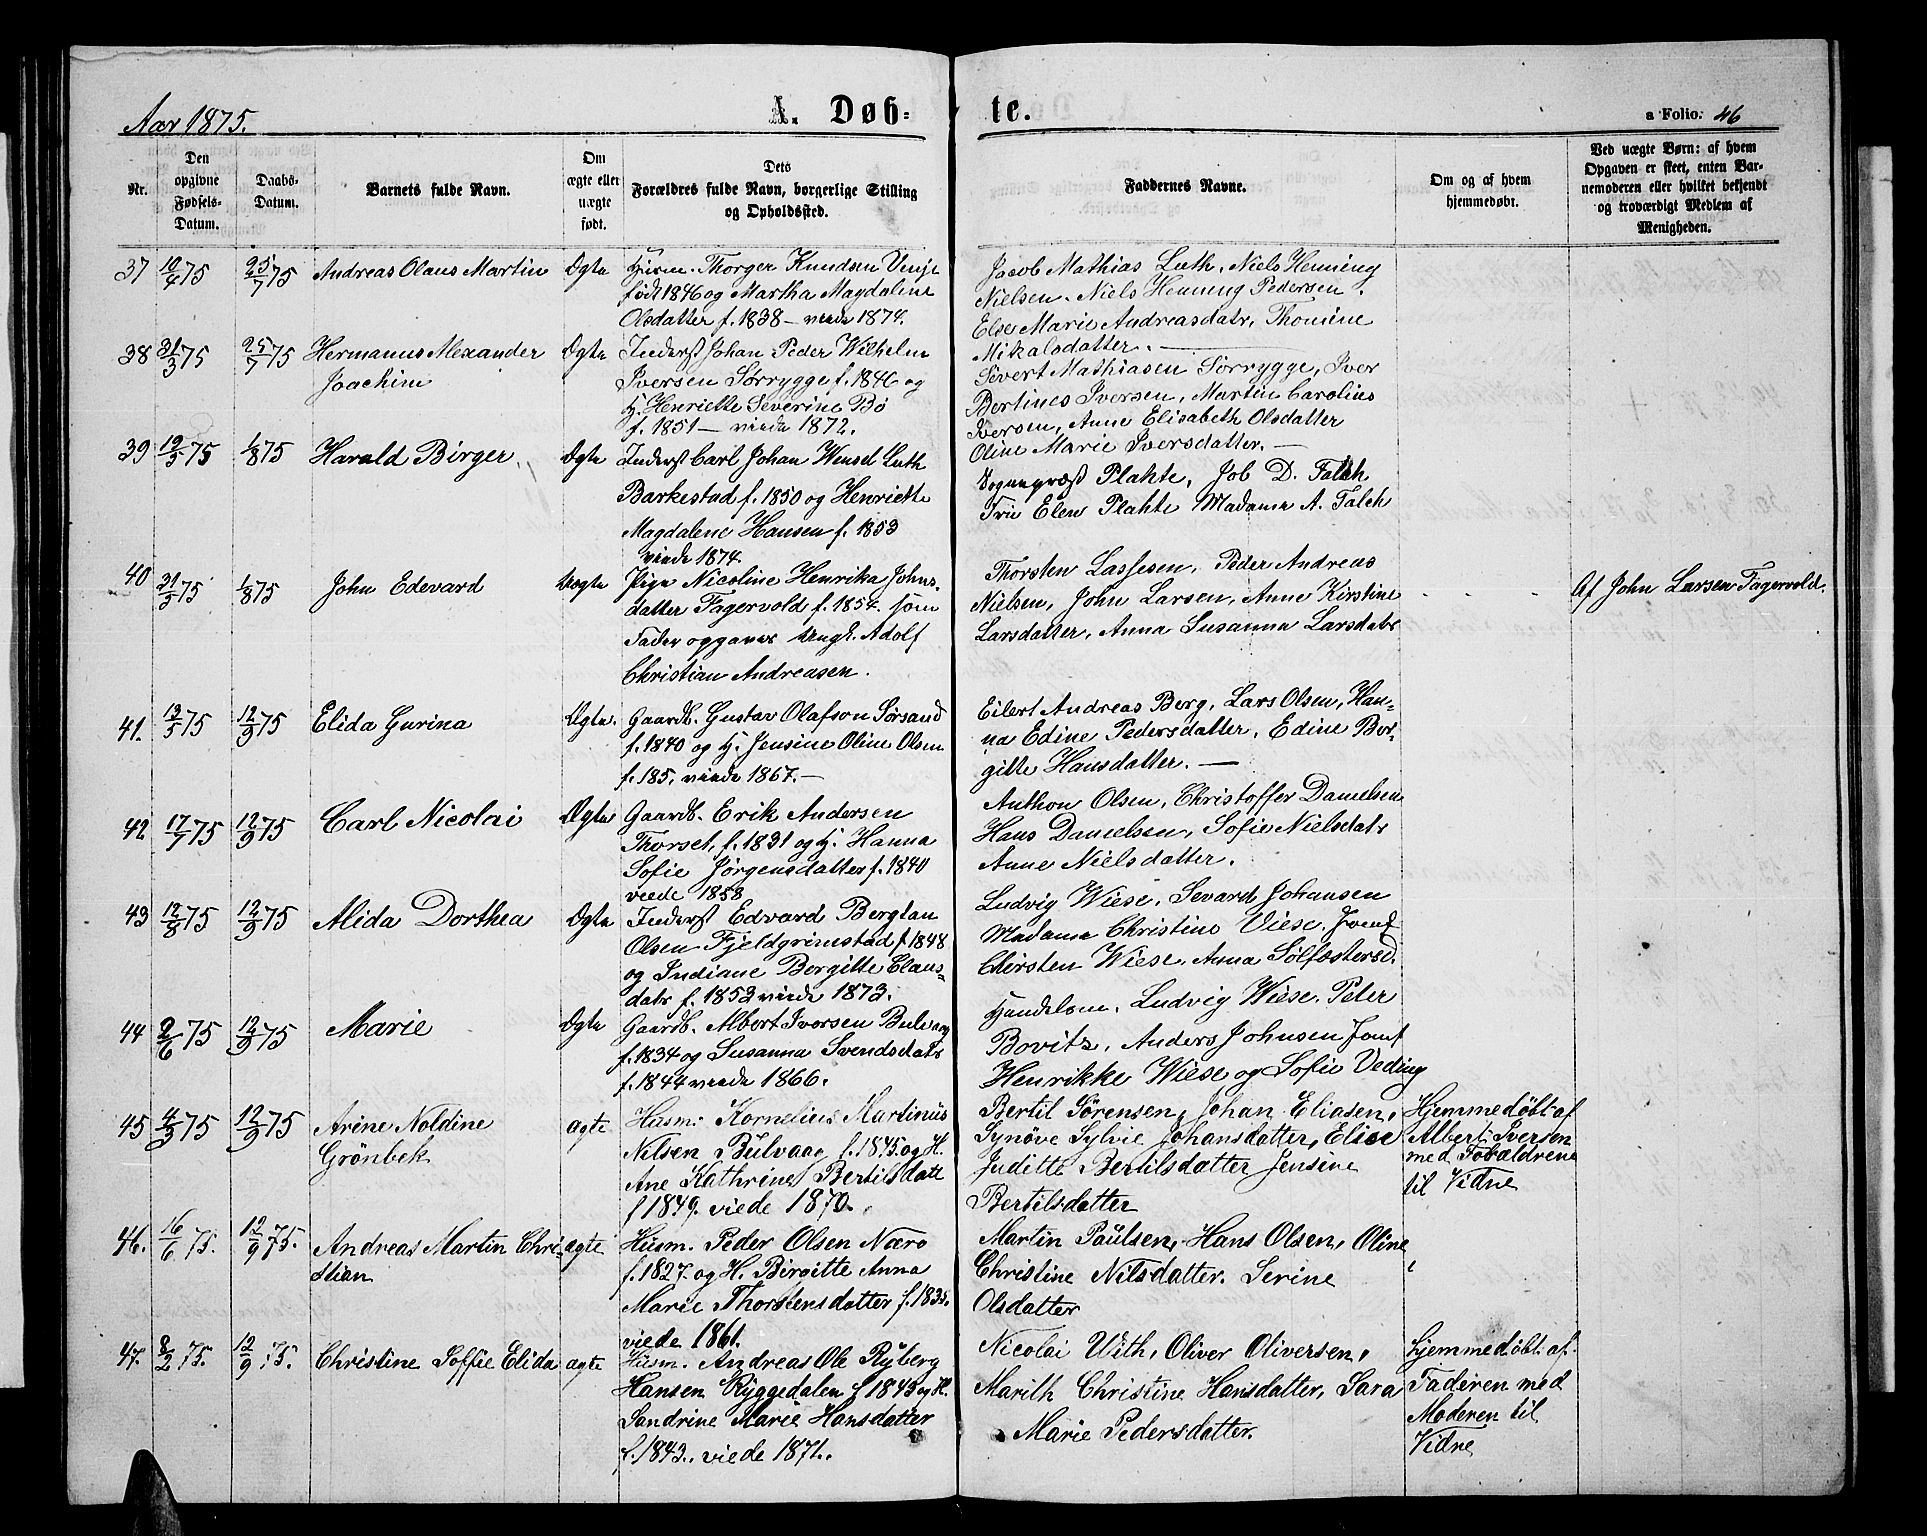 Aar 1875.
A. Døb-
te.
a Folio. 46
Nr.
Den opgivne Fødsels-Datum.
Daabs-Datum.
Barnets fulde Navn.
Om ægte eller uægte født.
Dets Forældres fulde Navn, borgerlige Stilling og Opholdssted.
Faddernes Navne.
Om og af hvem hjemmedøbt.
Ved uægte Børn: af hvem Opgaven er skeet, enten Barnemoderen eller hvilket bekjendt og troværdigt Medlem af Menigheden.
37 10/4 75 25/7 75 Andreas Olaus Martin Ægte
Husm. Thorger Knudsen Venje
født 1846 og Martha Magdalene
Olsdatter f. 1838 – viede 1874.
Jacob Mathias Luth, Niels Henning
Nielsen. Niels Henning Pedersen.
Else Marie Andreasdatr, Thomine
Mikalsdatter. —
38 31/3 75 25/7 75 Hermanus Alexander Ægte
Joachim
Inderst Johan Peder Wilhelm
Iversen Sørrygge f. 1846 og
H. Henriette Severine Bø
f. 1851 – viede 1872.
Sivert Mathiasen Sørrygge, Iver
Bertines Iversen, Martin Carolius
Iversen, Anne Elisabeth Olsdatter
Oline Marie Iversdatter. —
39 19/5 75 1/8 75 Harald Birger Ægte
Inderst Carl Johan Wensel Luth
Barkestad f. 1850 og Henriette
Magdalene Hansen f. 1853
viede 1874.
Sognepræst Plahte, Job D. Falch
Fru Elen Plahte Madame A. Falch
40 31/5 75 1/8 75 John Edevard Uægte
Pige Nicoline Henrika Johns-
datter Fagervold f. 1854. som
Fader opgaves Ungk. Adolf
Christian Andreasen.
Thorsten Lassesen, Peder Andreas
Nielsen, John Larsen, Anne Kirstine
Larsdatter, Anna Susanna Larsdatr
Af John Larsen Fagervold.
41. 13/5 75 12/9 75 Elida Gurina Ægte.
Gaardb. Gustav Olafson Sørsand
f. 1840 og H. Jensine Oline Olsen
f. 185, viede 1867. —
Eilert Andreas Berg, Lars Olsen, Han-
na Edine Pedersdatter, Edine Ber-
gitte Hansdatter. —
42 17/7 75 12/9 75 Carl Nicolai Ægte
Gaardb. Erik Andersen
Thorset, f. 1831 og H. Hanna
Sofie Jørgensdatter f. 1840
viede 1858
Anthon Olsen, Christoffer Danielsen
Hans Danielsen, Sofie Nielsdatr
Anne Nielsdatter.
43 12/8 75 12/9 75 Alida Dorthea Ægte
Inderst Edvard Bergtan
Olsen Fjeldgrimstad f. 1848
og Indiane Bergitte Claus-
datr f. 1853 viede 1873.
Ludvig Wiese, Sevard Johansen
Madame Christine Viese. Jomf
Chirsten Wiese, Anna Sølfæstersd.
44 2/6 75 12/9 75 Marie Ægte
Gaardb. Albert Iversen Bulvaag
f. 1834 og Susanna Svendsdatr
f. 1844 viede 1866.
Handelsm. Ludvig Wiese, Peter
Bovitz, Anders Johnsen Jomf
Henrikke Wiese og Sofie Veding
45 4/3 75 12/9 75 Arine Noldine ægte
Grönbek
Husm: Kornelius Martinüs
Nilsen Bülvaag f. 1845. og H.
Ane Kathrine Bertilsdatt
f 1849. viede 1870.
Bertil Sörensen, Johan Eliasen,
Synöve Sylvie Johansdatter, Elise
Juditte Bertilsdatter Jensine
Bertilsdatter
Hjemmedöbt af
Albert Iversen
med Forældrene
til Vidne
46. 16/6 75. 12/9 75. Andreas Martin Chri- ægte
stian
Hüsm. Peder Olsen Nærö
f. 1827. og H. Birgitte Anna
Marie Thorstensdatter f. 1835.
viede 1861.
Martin Paülsen, Hans Olsen, Oline
Christine Nilsdatter. Serine
Olsdatter
47. 8/2 75. 12/9 75. Christine Soffie Elida ægte
Hüsm. Andreas Ole Ryberg
Hansen Ryggedalen f. 1843 og H.
Sandrine Marie Hansdatter
f. 1843., viede 1871.
Nicolai With, Oliver Oliversen,
Marith Christine Hansdatter, Sara
Marie Pedersdatter.
hjemmedöbt af
Faderen med
Moderen til
Vidne